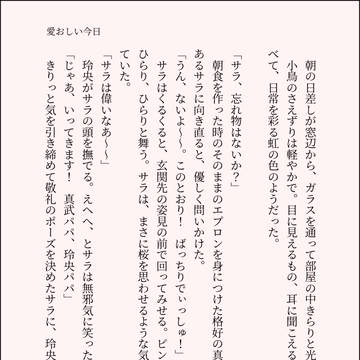 愛おしい今日
朝の日差しが窓辺から、ガラスを通って部屋の中きらりと光
小鳥のさえずりは軽やかで。目に見えるもの、耳に聞こえる
べて、日常を彩る虹の色のようだった。
「サラ、忘れ物はないか？」
朝食を作った時のそのままのエプロンを身につけた格好の真
あるサラに向き直ると、優しく問いかけた。
「うん、ないよ〜〜。このとおり！　ばっちりでぃっしゅ！」
サラはくるくると、玄関先の姿見の前で回ってみせる。ピン
ひらり、ひらりと舞う。サラは、まさに桜を思わせるような気
ていた。
「サラは偉いなあ〜〜」
玲央がサラの頭を撫でる。えへへ、とサラは無邪気に笑った
「じゃあ、いってきます！　真武パパ、玲央パパ」
きりっと気を引き締めて敬礼のポーズを決めたサラに、玲央